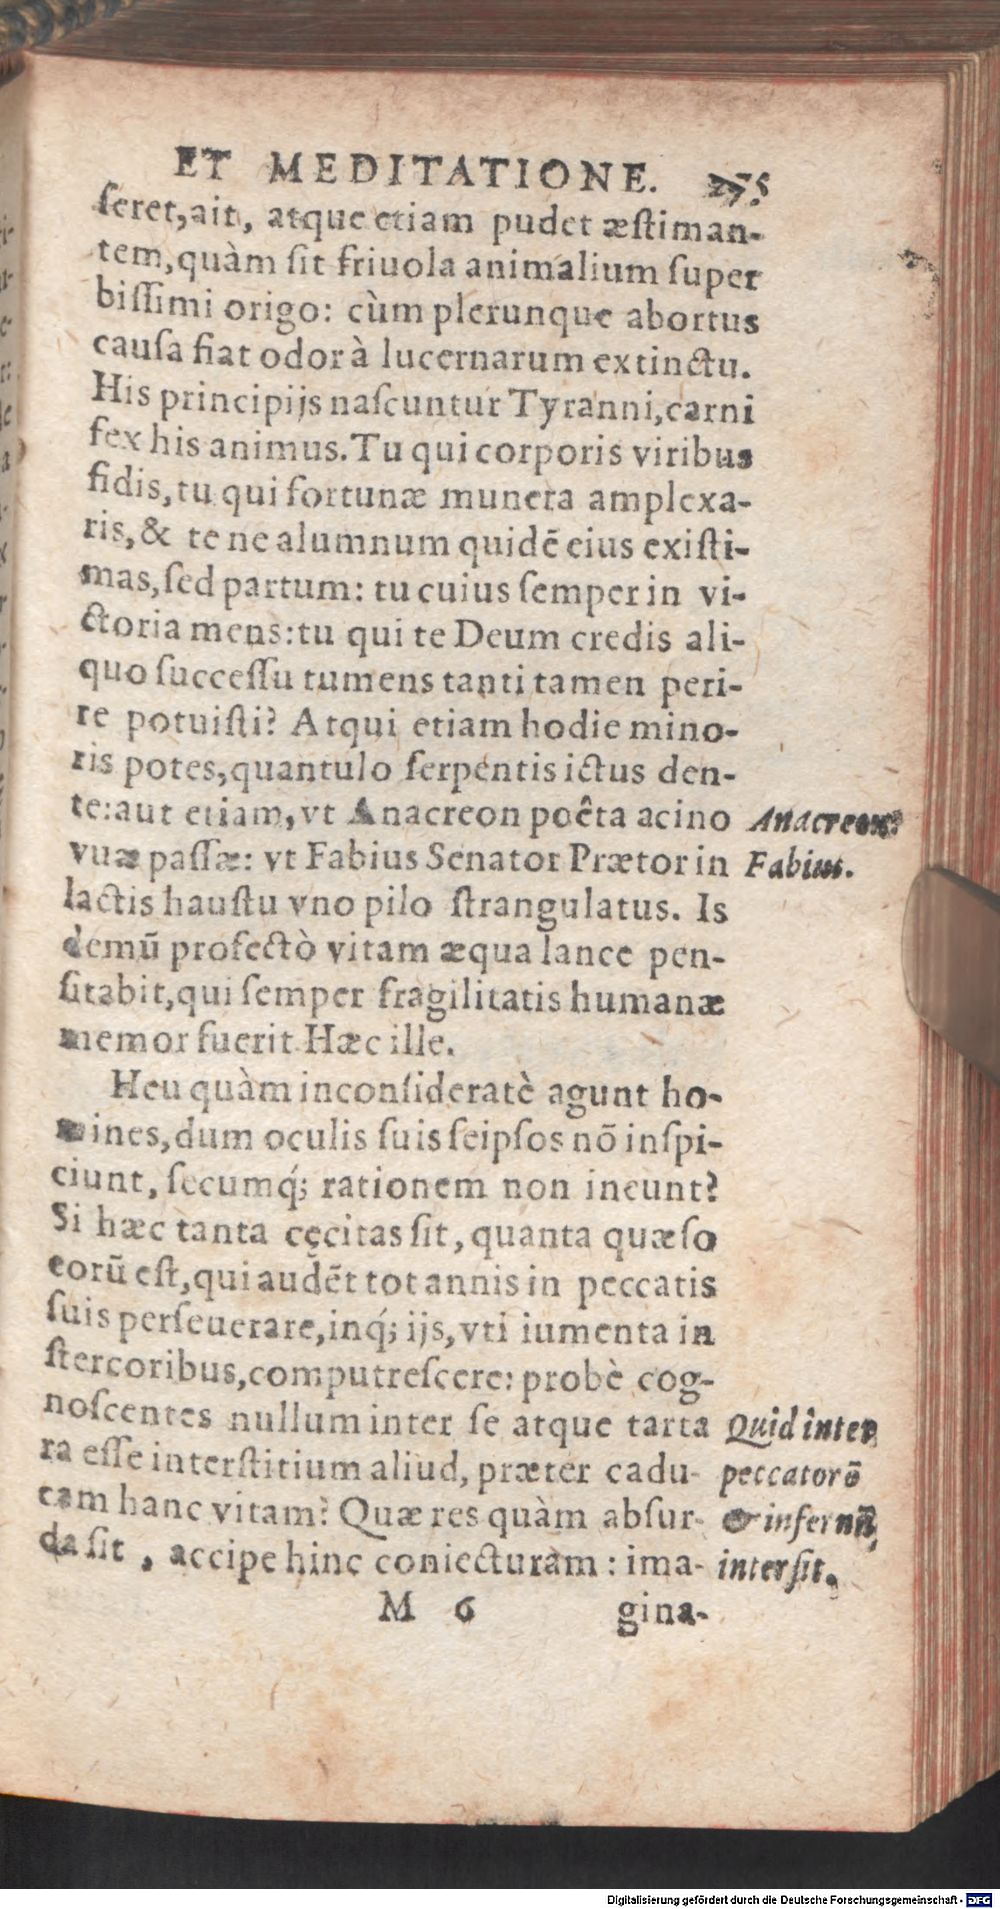 ET MEDITATIONE. 275
ſeret, ait, atque etiam pudet æſtiman-
tem, quàm ſit friuola animalium ſuper
biſſimi origo: cùm plerunque abortus
cauſa fiat odor à lucernarum extinctu.
His principijs naſcuntur Tyranni, carni
fex his animus. Tu qui corporis viribus
fidis, tu qui fortunæ munera amplexa-
ris, & te ne alumnum quidẽ eius exiſti-
mas, ſed partum: tu cuius ſemper in vi-
ctoria mens: tu qui te Deum credis ali-
quo ſucceſſu tumens tanti tamen peri-
re potuiſti? Atqui etiam hodie mino-
ris potes, quantulo ſerpentis ictus den-
te: aut etiam, vt Anacreon poêta acino Anacreon.
vuæ paſſæ: vt Fabius Senator Prætor in Fabius.
lactis hauſtu vno pilo ſtrangulatus. Is
demũ profectò vitam æqua lance pen-
ſitabit, qui ſemper fragilitatis humanæ
memor fuerit. Hæc ille.
Heu quàm inconſideratè agunt ho-
mines, dum oculis ſuis ſeipſos nõ inſpi-
ciunt, ſecumq́; rationem non ineunt?
Si hæc tanta cęcitas ſit, quanta quæſo
eorũ eſt, qui audẽt tot annis in peccatis
ſuis perſeuerare, inq́; ijs, vti iumenta in
ſtercoribus, computreſcere: probè cog-
noſcentes nullum inter ſe atque tarta Quid inter
ra eſſe interſtitium aliud, præter cadu- peccatorẽ
cam hanc vitam? Quæ res quàm abſur- & infernũ
da ſit, accipe hinc coniecturam: ima- interſit.
M 6 gina-
Digitalisierung gefördert durch die Deutsche Forschungsgemeinschaft - DFG